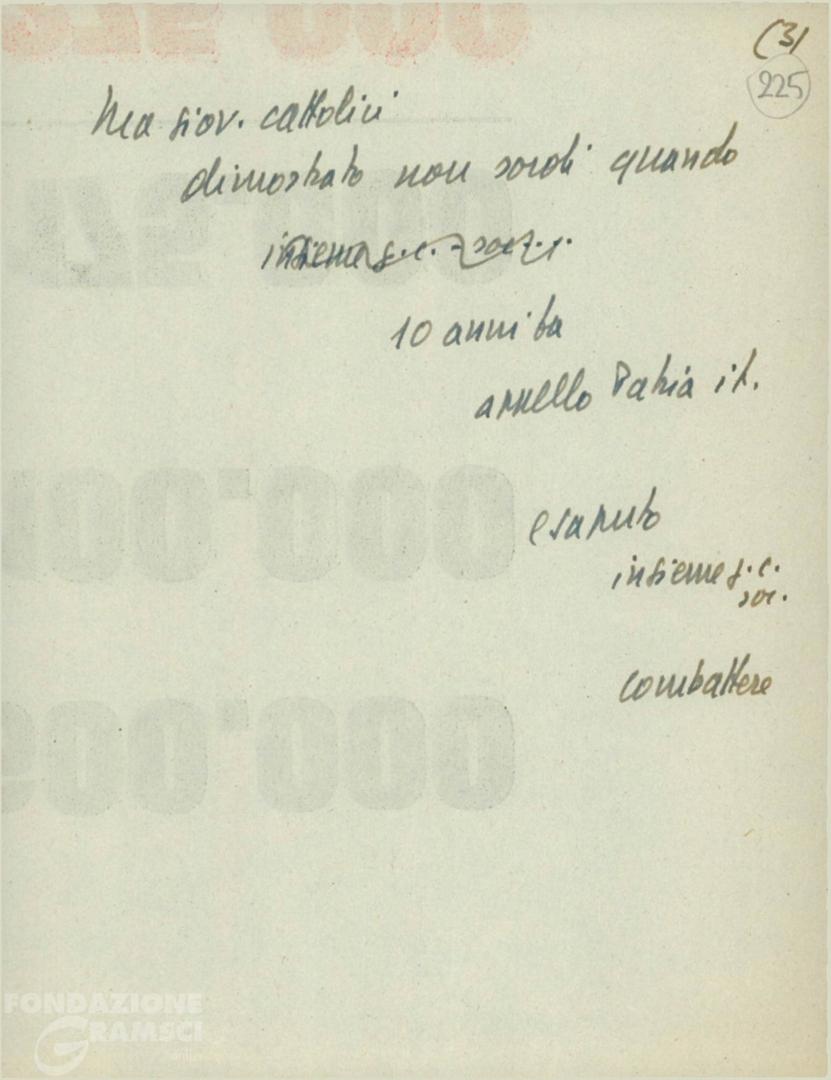 (3)
225
Ma giov. cattolici
dimostrato non sordi quando
insieme g.c. - soc.
10 anni fa
appello Patria it.
e saputo
insieme g.c.
soc.
combattere
FONDAZIONE
GRAMSCI